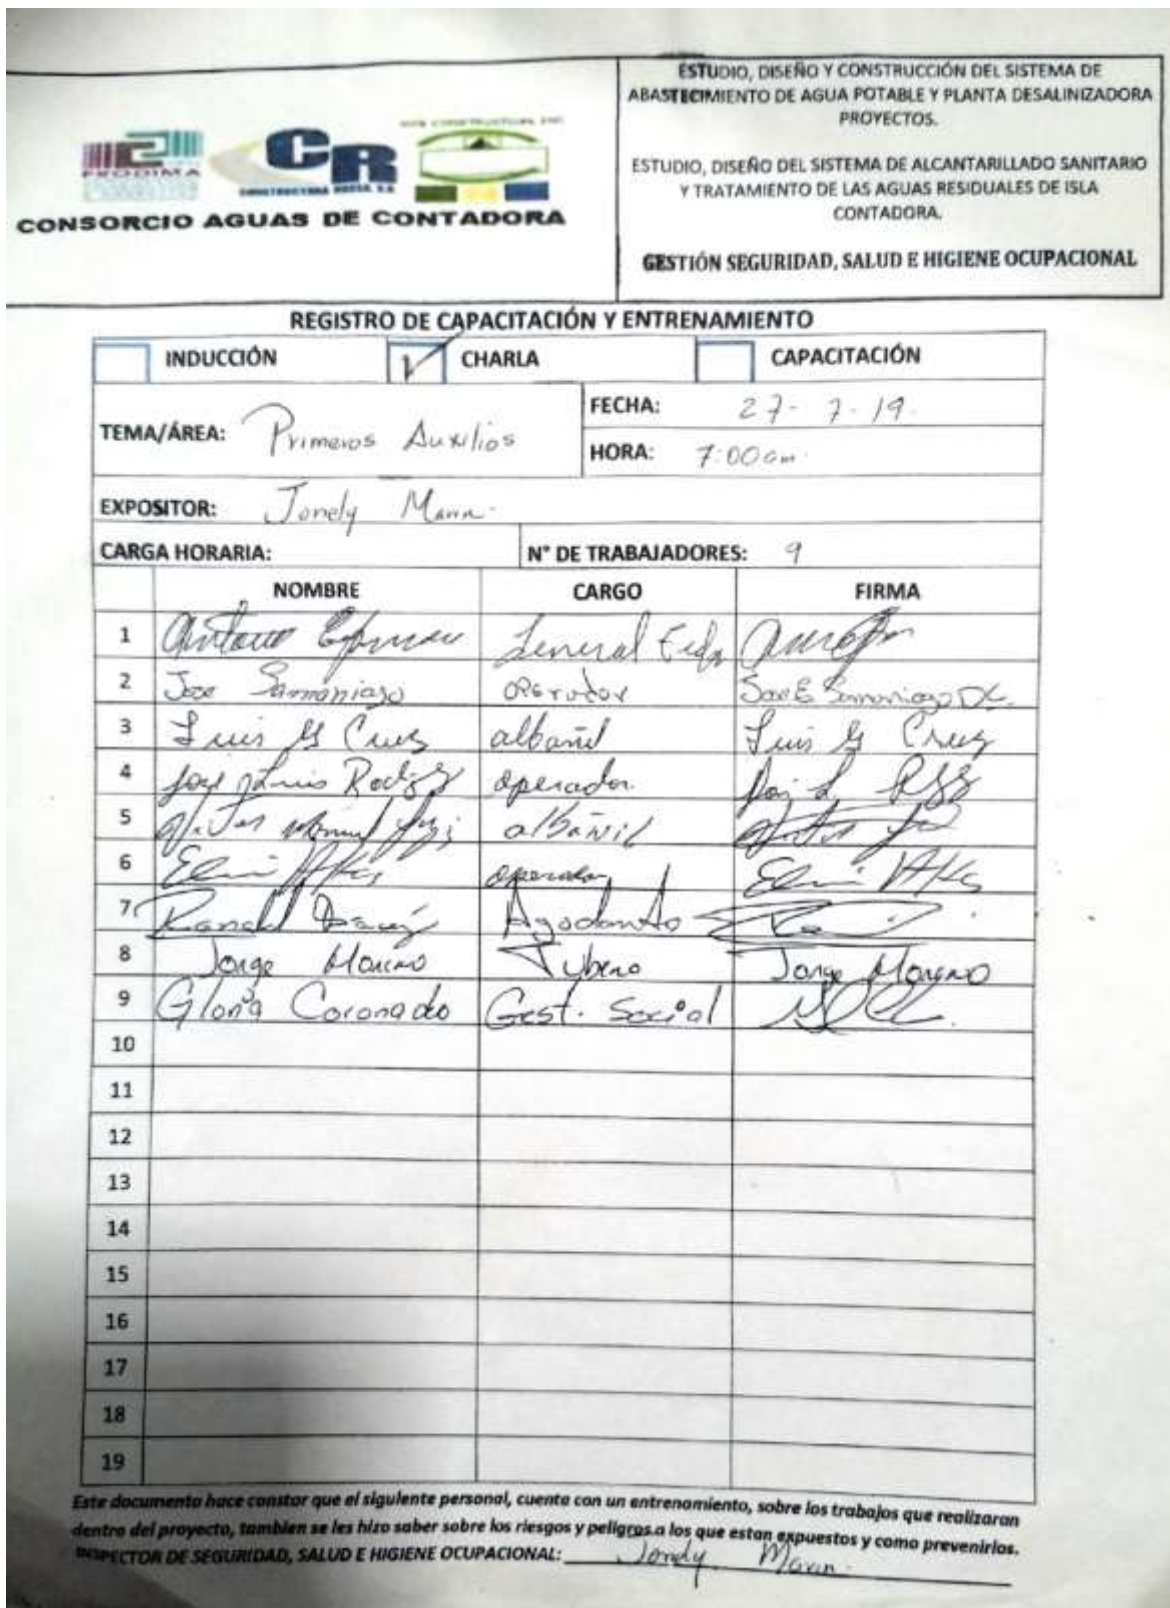 ESTUDIO, DISEÑO Y CONSTRUCCIÓN DEL SISTEMA DE
ABASTECIMIENTO DE AGUA POTABLE Y PLANTA DESALINIZADORA
PROYECTOS.
ESTUDIO, DISEÑO DEL SISTEMA DE ALCANTARILLADO SANITARIO
Y TRATAMIENTO DE LAS AGUAS RESIDUALES DE ISLA
CONTADORA.
GESTIÓN SEGURIDAD, SALUD E HIGIENE OCUPACIONAL
PRODIMA
CR
CONSORCIO AGUAS DE CONTADORA
REGISTRO DE CAPACITACIÓN Y ENTRENAMIENTO
INDUCCIÓN CHARLA CAPACITACIÓN
TEMA/ÁREA: Primeros Auxilios
FECHA: 27-7-19.
HORA: 7:00am.
EXPOSITOR: Jonely Marin.
CARGA HORARIA: N° DE TRABAJADORES: 9
NOMBRE CARGO FIRMA
1 General
2 Jose Samaniego Operador Jose E Samaniego
3 Luis G Cruz albañil Luis G Cruz
4 Jose Luis operador
5 Manuel albañil
6 operador
7 Ronald
8 Jorge Moreno Tubero Jorge Moreno
9 Gloria Coronado Gest. Social
10
11
12
13
14
15
16
17
18
19
Este documento hace constar que el siguiente personal, cuenta con un entrenamiento, sobre los trabajos que realizaran
dentro del proyecto, tambien se les hizo saber sobre los riesgos y peligros a los que estan expuestos y como prevenirlos.
INSPECTOR DE SEGURIDAD, SALUD E HIGIENE OCUPACIONAL: Jonely Marin.